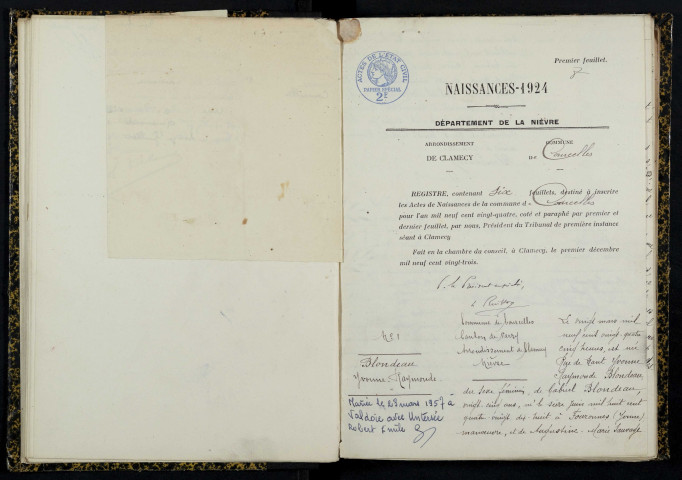 Premier feuillet.
ACTES DE L'ETAT CIVIL
PAPIER SPÉCIAL
2F
NAISSANCES-1924
DÉPARTEMENT DE LA NIÈVRE
ARRONDISSEMENT
DE CLAMECY
COMMUNE
DE Courcelles
REGISTRE, contenant six feuillets, destiné à inscrire
les Actes de Naissances de la commune d Courcelles
pour l'an mil neuf cent vingt-quatre, coté et paraphé par premier et
dernier feuillet, par nous, Président du Tribunal de première instance
séant à Clamecy
Fait en la chambre du conseil, à Clamecy, le premier décembre
mil neuf cent vingt-trois.
No 1
Blondeau
Yvonne Raymonde
Mariée le 23 mars 1957 à
Valdoie avec
Robert Emile
Commune de Courcelles
Canton de Varzy
Arrondissement de Clamecy
Nièvre
Le vingt mars mil
neuf cent vingt quatre
cinq heures, est née
Yvonne
Raymonde Blondeau
du sexe féminin, de Gabriel Blondeau,
vingt cinq ans, né le seize juin mil huit cent
quatre vingt dix huit à Fouronnes (Yonne)
manœuvre, et de Augustine Marie Sauvage